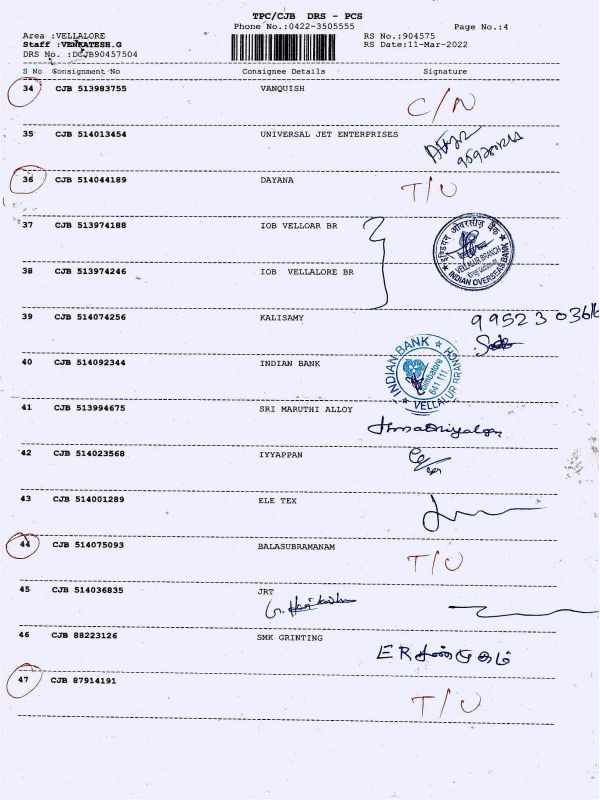 TPC/CJB DRS - PCS
Phone No.:0422-3505555 Page No.:4
Area :VELLALORE RS No.:904575
Staff :VENKATESH.G RS Date:11-Mar-2022
DRS No. :DCJB90457504
S No Consignment No Consignee Details Signature
34 CJB 513983755 VANQUISH C/N
35 CJB 514013454 UNIVERSAL JET ENTERPRISES
36 CJB 514044189 DAYANA T/U
37 CJB 513974188 IOB VELLOAR BR
इण्डियन ओवरसीज़ बैंक
VELLALUR BRANCH
INDIAN OVERSEAS BANK
38 CJB 513974246 IOB VELLALORE BR
39 CJB 514074256 KALISAMY 99523 03616
40 CJB 514092344 INDIAN BANK
INDIAN BANK
Coimbatore
641 111
VELLALUR
41 CJB 513994675 SRI MARUTHI ALLOY
42 CJB 514023568 IYYAPPAN
43 CJB 514001289 ELE TEX
44 CJB 514075093 BALASUBRAMANAM T/U
45 CJB 514036835 JRT
46 CJB 88223126 SMK GRINTING
ER சண்முகம்
47 CJB 87914191 T/U